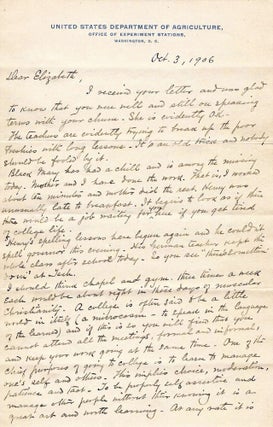 UNITED STATES DEPARTMENT OF AGRICULTURE,
OFFICE OF EXPERIMENT STATIONS,
WASHINGTON, D. C.
Oct. 3, 1906
Dear Elizabeth,
I received your letter and was glad
to know that you were well and still on speaking
terms with your chum. She is evidently O.K.
The teachers are evidently trying to break up the poor
Freshies with long lessons. It is an old trick and nobody
should be fooled by it.
Black Mary has had a chill and is among the missing
today. Mother and I have done the work. That is, I worked
about ten minutes and mother did the rest. Henry was
unusually late to breakfast. It begins to look as if
there would be a job waiting for you if you get tired
of college life.
Henry's spelling lessons have begun again and he could n't
spell governor this evening. His German teacher kept the
whole class after school today. So you see
at Tech.
I should think chapel and gym. three times a week
each would be about right in these days of muscular
Christianity. A college is often said to be a little
world in itself (a microcosm - to speak in the language
of the learned) and if this is so you will find that you
cannot attend all the meetings, formal and informal,
and keep your work going at the same time. One of the
chief purposes of going to college is to learn to manage
one's self and others. This implies choice, moderation,
patience and tact. To be properly self assertive and
manage other people without their knowing it is a
great art and worth learning. At any rate it is